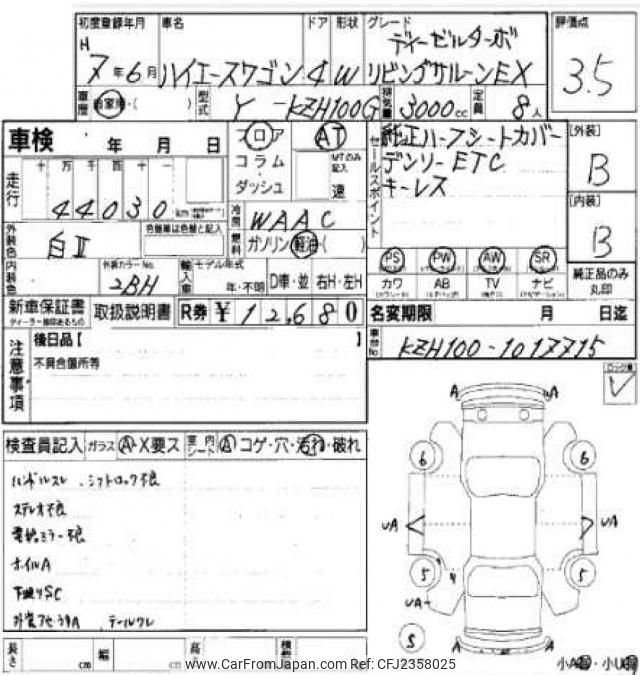 初度登録年月 車名 ドア 形状 グレード 評価点
H 7年6月 ハイエースワゴン 4 W ディーゼルターボ
リビングサルーンEX 3.5
車歴 自家用・( ) 型式 Y-KZH100G 排気量 3000cc 定員 8人
車検 年 月 日 フロア AT 純正ハーフシートカバー [外装]
コラム MTのみ記入 デンソーETC B
ダッシュ 速 キーレス
セールスポイント
走行 十 万 千 百 十 一
44030 km
冷房 WAAC [内装]
外装色 白II 色替車は色替と記入 燃料 ガソリン・軽油・( ) B
PS PW AW SR
内装色 外装カラーNo. 2BH 輸入車 モデル年式 年・不明 D車・並 右H・左H カワ AB TV ナビ 純正品のみ丸印
新車保証書 取扱説明書 R券 ¥12,680 名変期限 月 日迄
ディーラー捺印あるもの
車台No KZH100-1017715
注意事項 後日品【 】
不具合箇所等
検査員記入 ガラス A・X要ス 車内シート A コゲ・穴・汚れ・破れ
ハンドルスレ シフトロック不良
ステレオ不良
電格ミラー不良
ホイルA
下廻りSC
テールワレ
A A
6 6
UA UA
5 4 5
UA
S
A A
長さ cm 幅 cm 高さ
小A 小U
www.CarFromJapan.com Ref: CFJ2358025